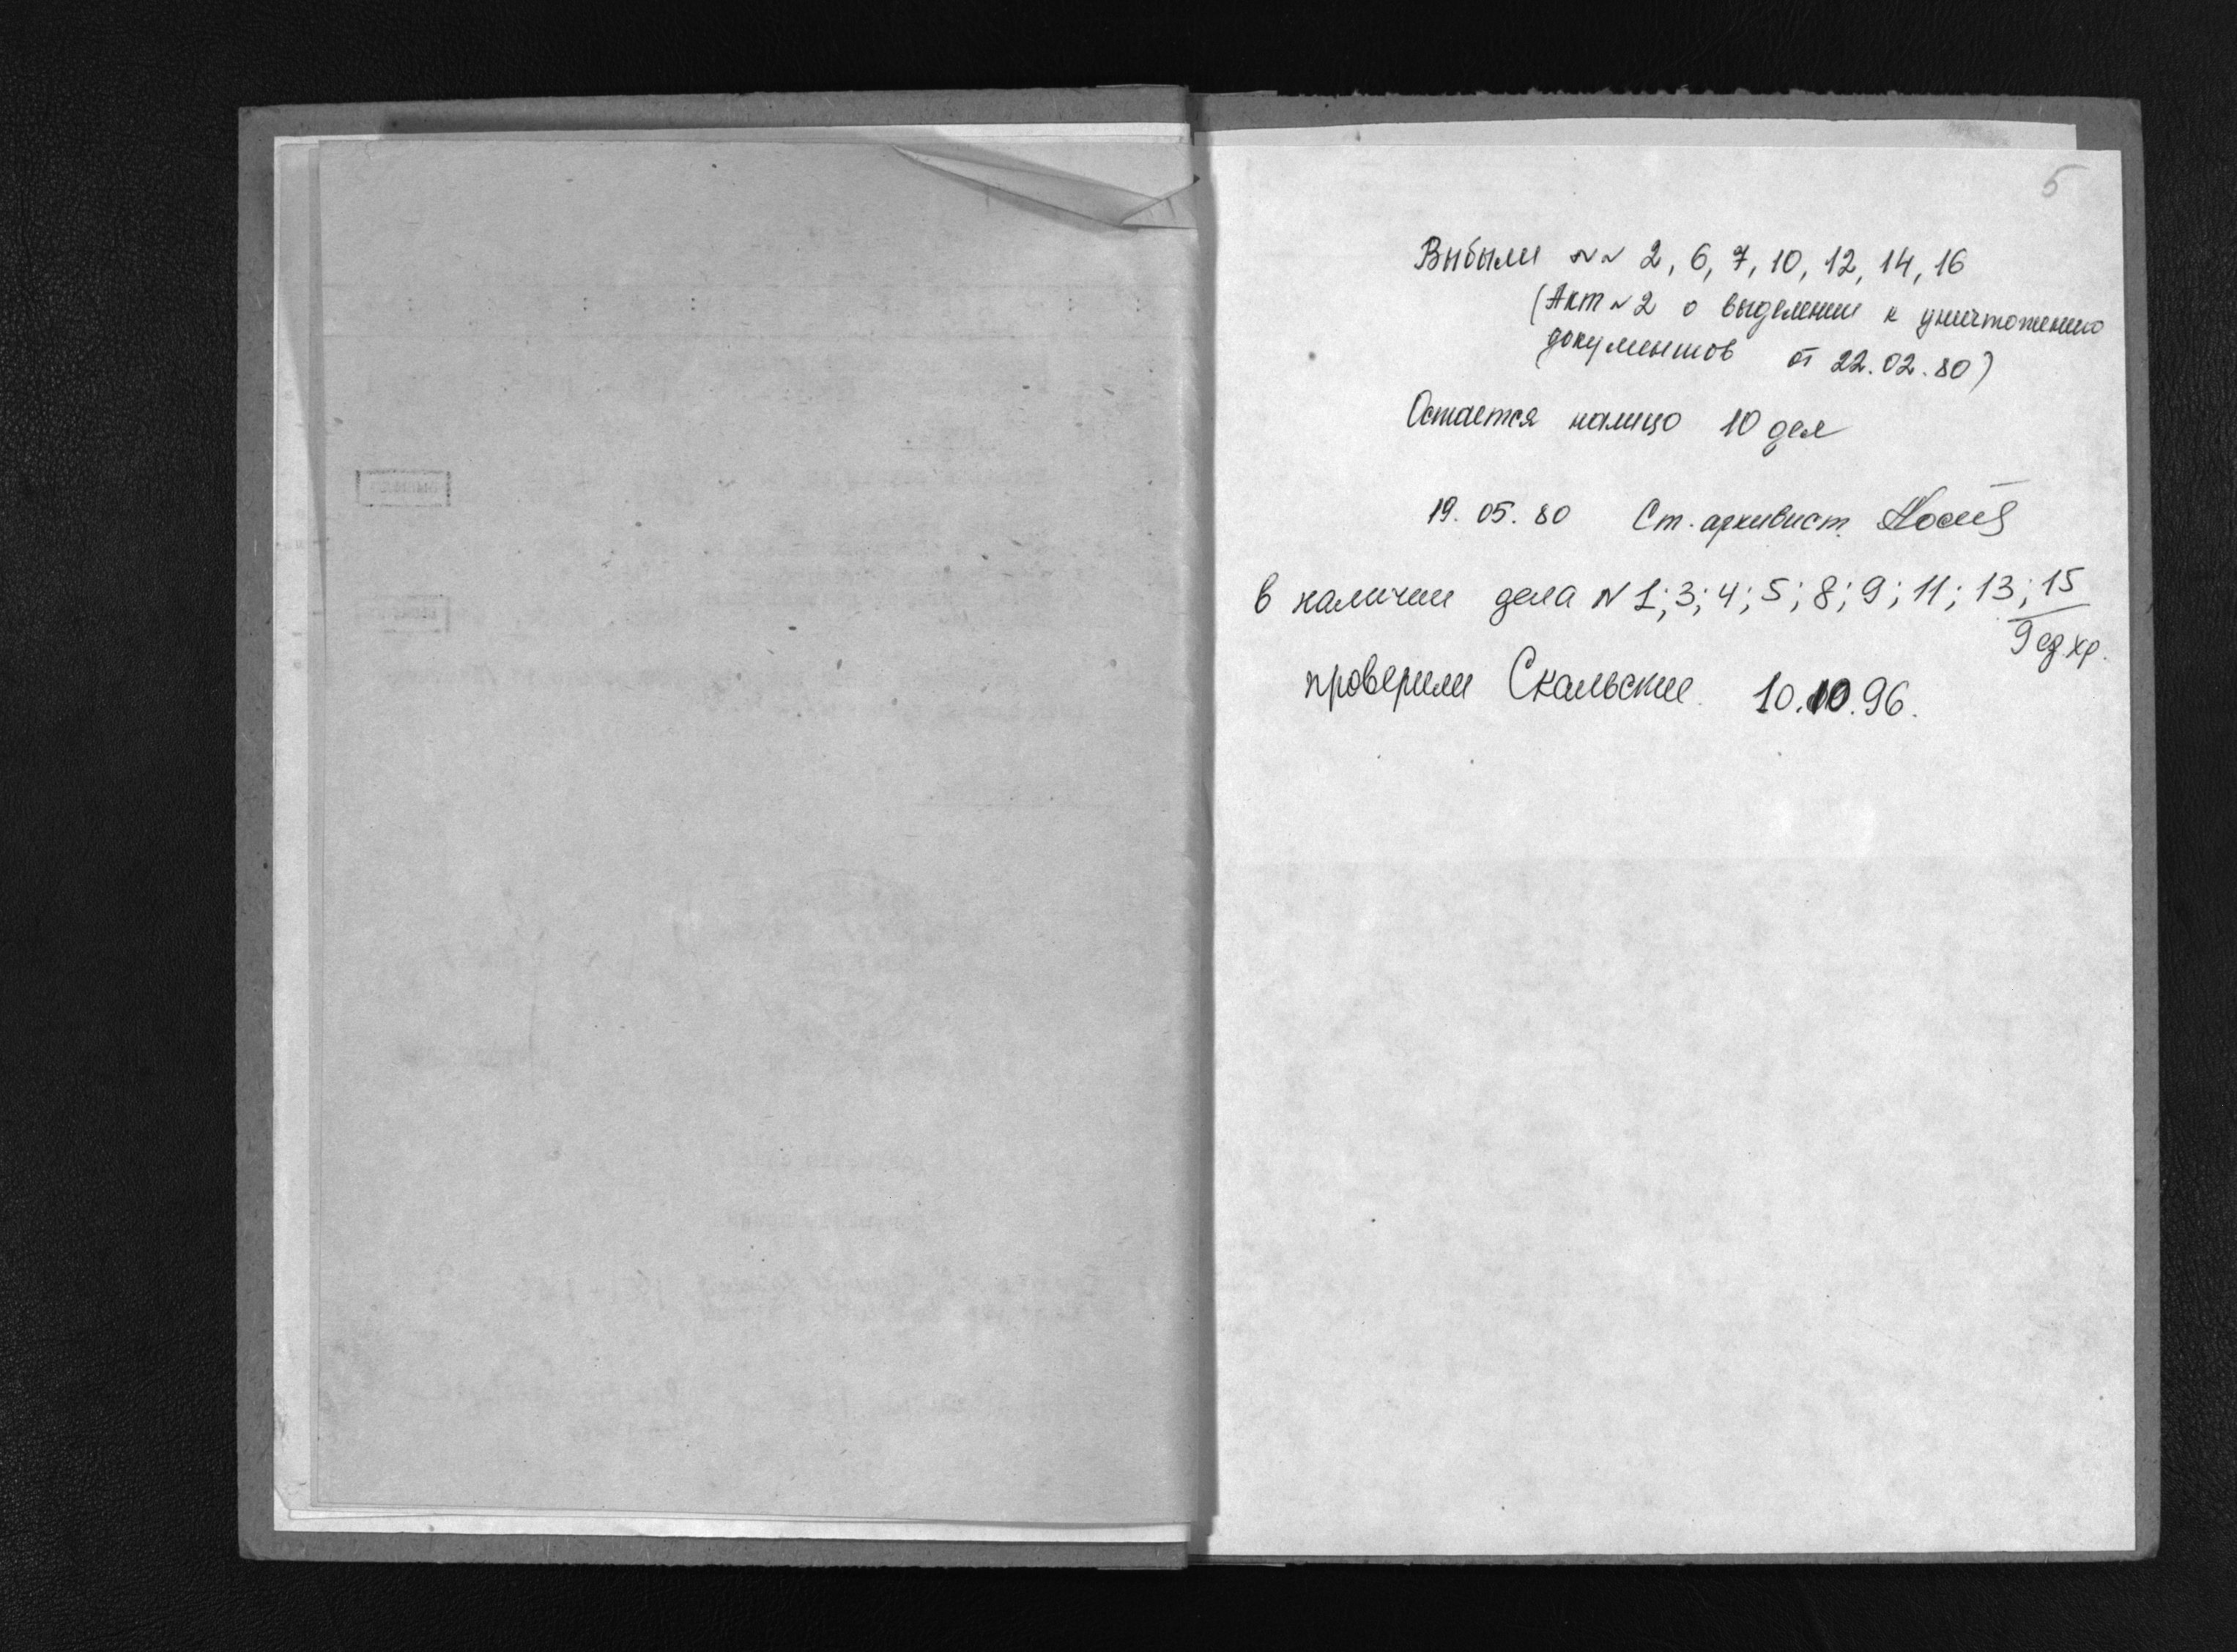 5
Выбыли №№ 2, 6, 7, 10, 12, 14, 16
(Акт № 2 о выделении к уничтожению
документов от 22.02.80)
Остается налицо 10 дел
19. 05. 80 Ст. архивист
В наличии дела № 1; 3; 4; 5; 8; 9; 11; 13; 15
9 ед. хр.
проверили Скальские. 10.10.96.